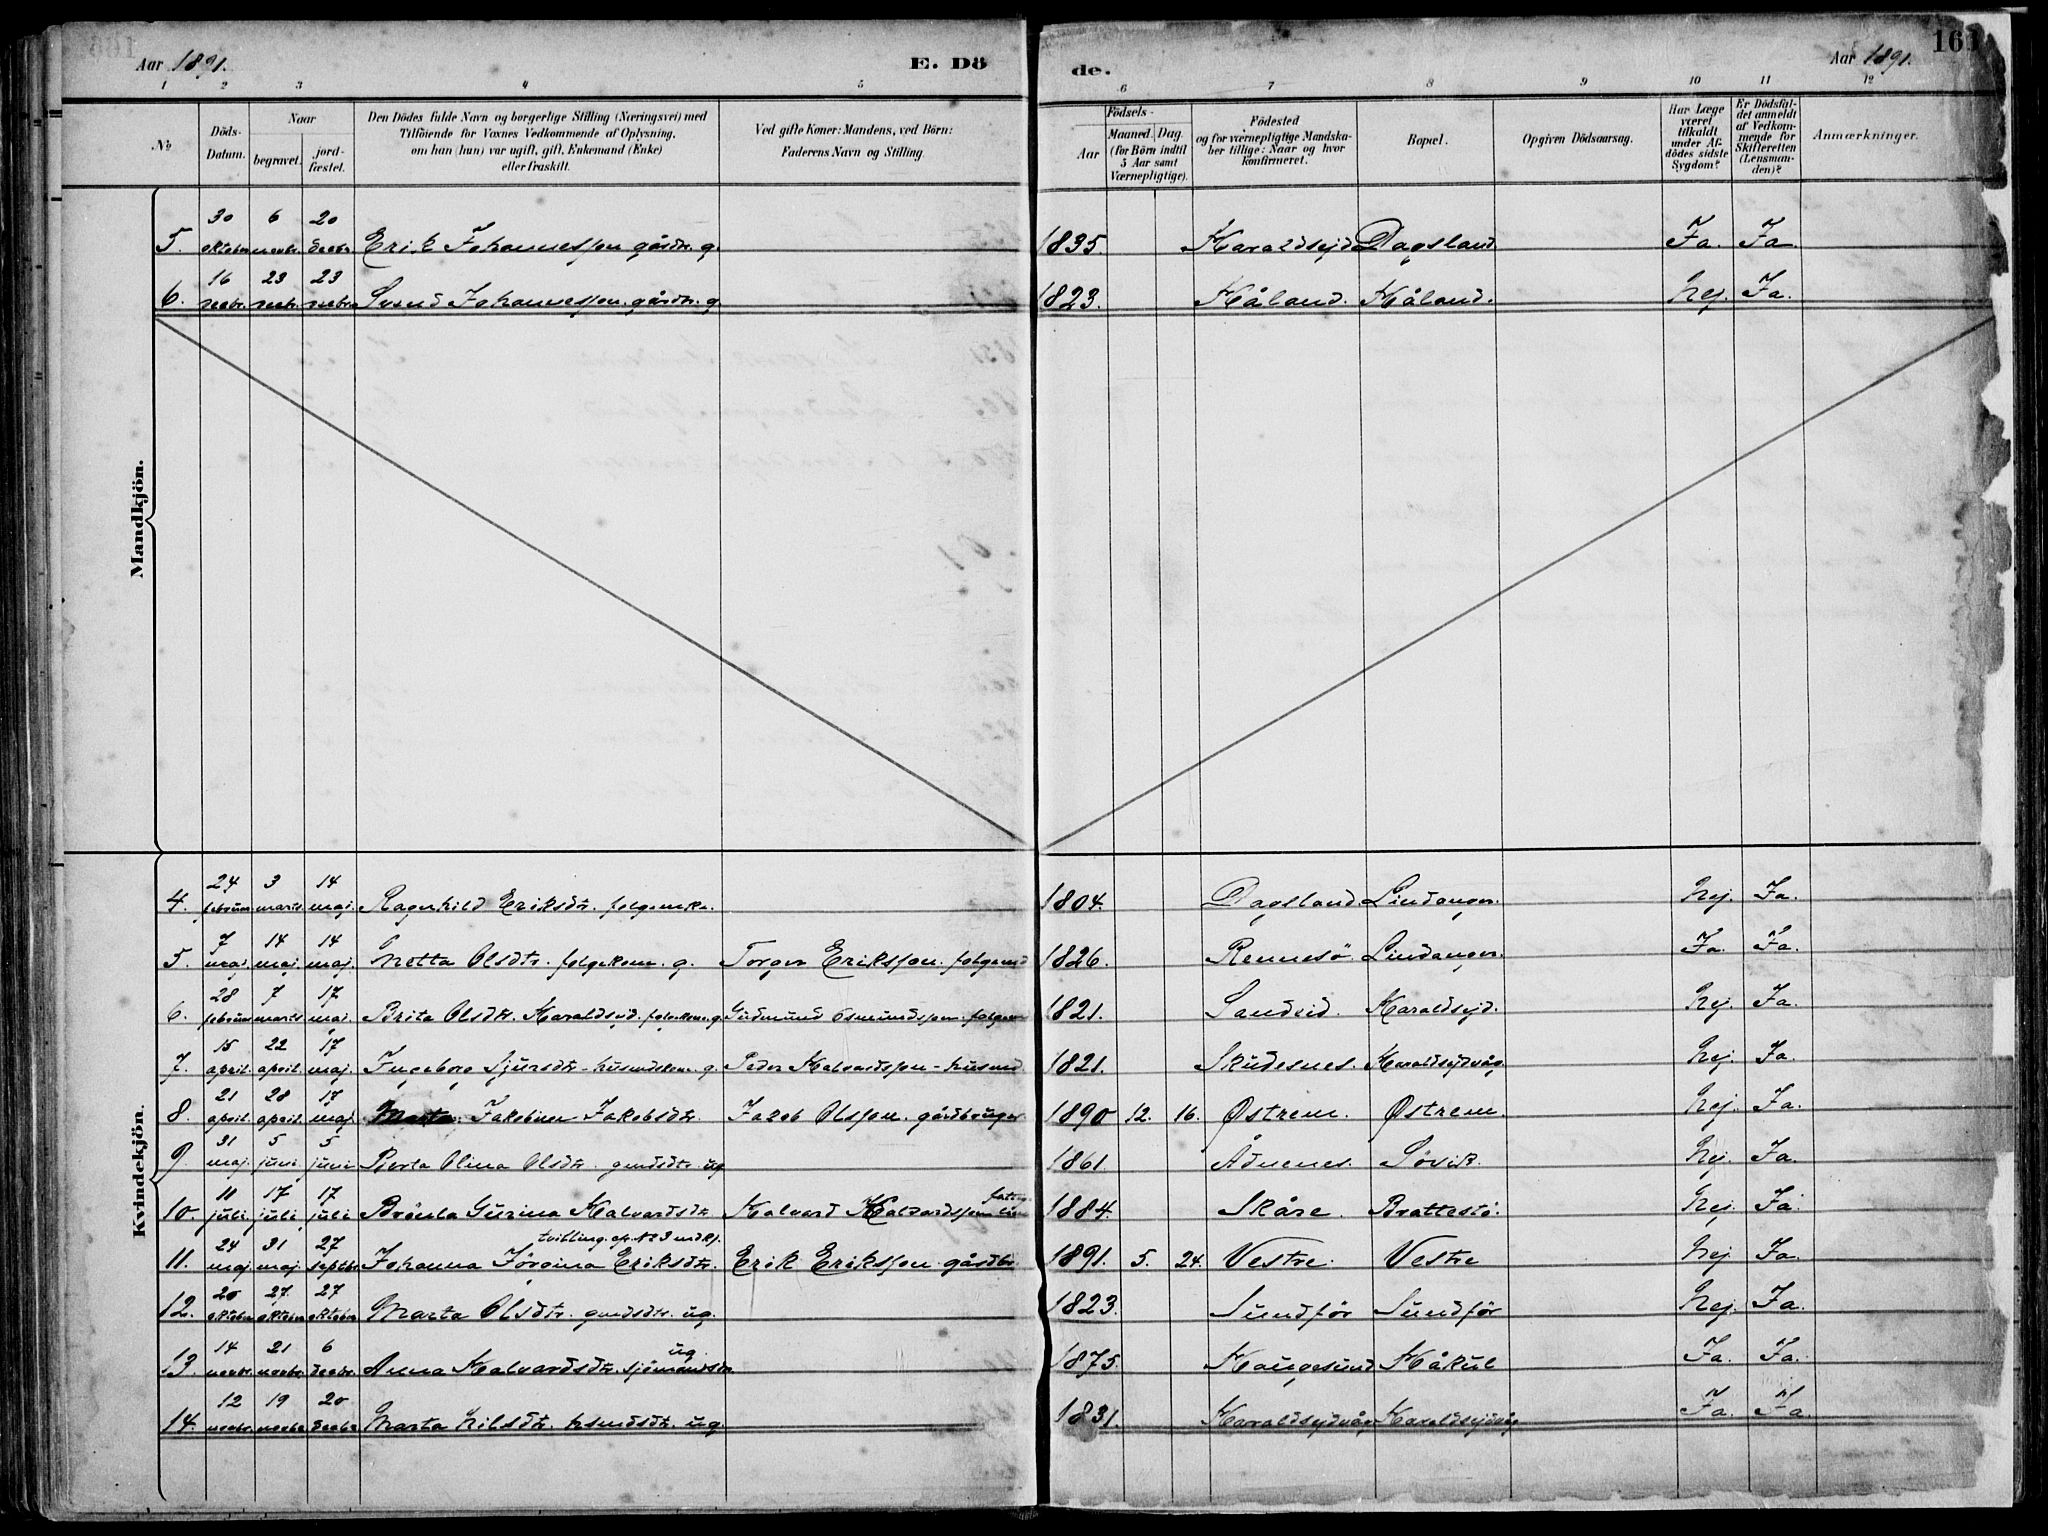 Aar 1891. E. Dö
de. Aar 1891. 161
1 2 3 4 5 6 7 8 9 10 11 12
№ Döds-Datum. Naar begravet. jord-fæstet. Den Dödes fulde Navn og borgerlige Stilling (Næringsvei) med Tilföiende for Voxnes Vedkommende af Oplysning, om han (hun) var ugift, gift, Enkemand (Enke) eller fraskilt. Ved gifte Koner: Mandens, ved Börn: Faderens Navn og Stilling.
Födsels- Aar Maaned. Dag. (for Börn indtil 5 Aar samt Værnepligtige). Födested og for værnepligtige Mandska-ber tillige: Naar og hvor konfirmeret. Bopæl. Opgiven Dödsaarsag. Har Læge været tilkaldt under Af-dödes sidste Sygdom? Er Dödsfal-det anmeldt af Vedkom-mende for Skifteretten (Lensman-den)? Anmærkninger.
Mandkjön.
5. 30 oktober 6 novbr. 20 decbr. Erik Johannessen gårdbr. g. 1835. Haraldseid Dagsland Ja. Ja
6. 16 decbr. 23 decbr. 23 decbr. Svend Johannessen. gårdbr. g 1823. Håland. Håland. Nej. Ja.
Kvindekjön.
4. 24 februar 3 marts 14 maj. Ragnhild Eriksdtr. folgenke. 1804. Dagsland Lindanger. Nej. Ja.
5. 7 maj. 14 maj. 14 maj. Metta Olsdtr. folgekone. g. Torger Eriksson. folgemd 1826. Rennesö Lindanger. Ja. Ja.
6. 28 februar 7 marts 17 maj. Brita Olsdtr. Haraldseid. folgekone. g. Gudmund Osmundsson. folgem 1821. Sandeid. Haraldseid. Nej. Ja.
7. 15 april. 22 april. 17 maj. Ingeborg Sjursdtr - husmdskone. g. Peder Halvardsson - husmd. 1821. Skudesnes. Haraldseidvåg. Nej. Ja.
8. 21 april. 28 april. 17 maj Marta Jakobine Jakobsdtr. Jakob Olsson. gårdbruger 1890 12. 16. Østrem. Østrem. Nej. Ja.
9. 31 maj. 5 juni 5 juni Berta Olina Olsdtr. gmdsdtr. ug 1861. Ådnenes. Søvik. Nej. Ja.
10. 11 juli. 17 juli 17 juli Brönla Gurina Halvardsdtr Halvard Halvardsson 1884. Skåre. Brattestö. Nej. Ja.
tvilling. cfr. № 3 mdkj.
11. 24 maj 31 maj. 27 septbr. Johanna Jörgina Eriksdtr. Erik Eriksson. gårdbr 1891. 5. 24. Vestre. Vestre Nej Ja.
12. 20 oktober 27. oktober 27 oktober Marta Olsdtr. gmdsdtr. ug. 1823. Sundför Sundför Nej. Ja.
13. 14 novbr. 21 novbr. 6 decbr. Anna Halvardsdtr. sjömandsdtr. ug. 1875. Haugesund Håkul Ja. Ja.
14. 12 novbr. 19 novbr. 20 decbr Marta Nilsdtr. hsmdsdtr. ug 1831. Haraldseidvåg Haraldseidvåg Ja. Ja.